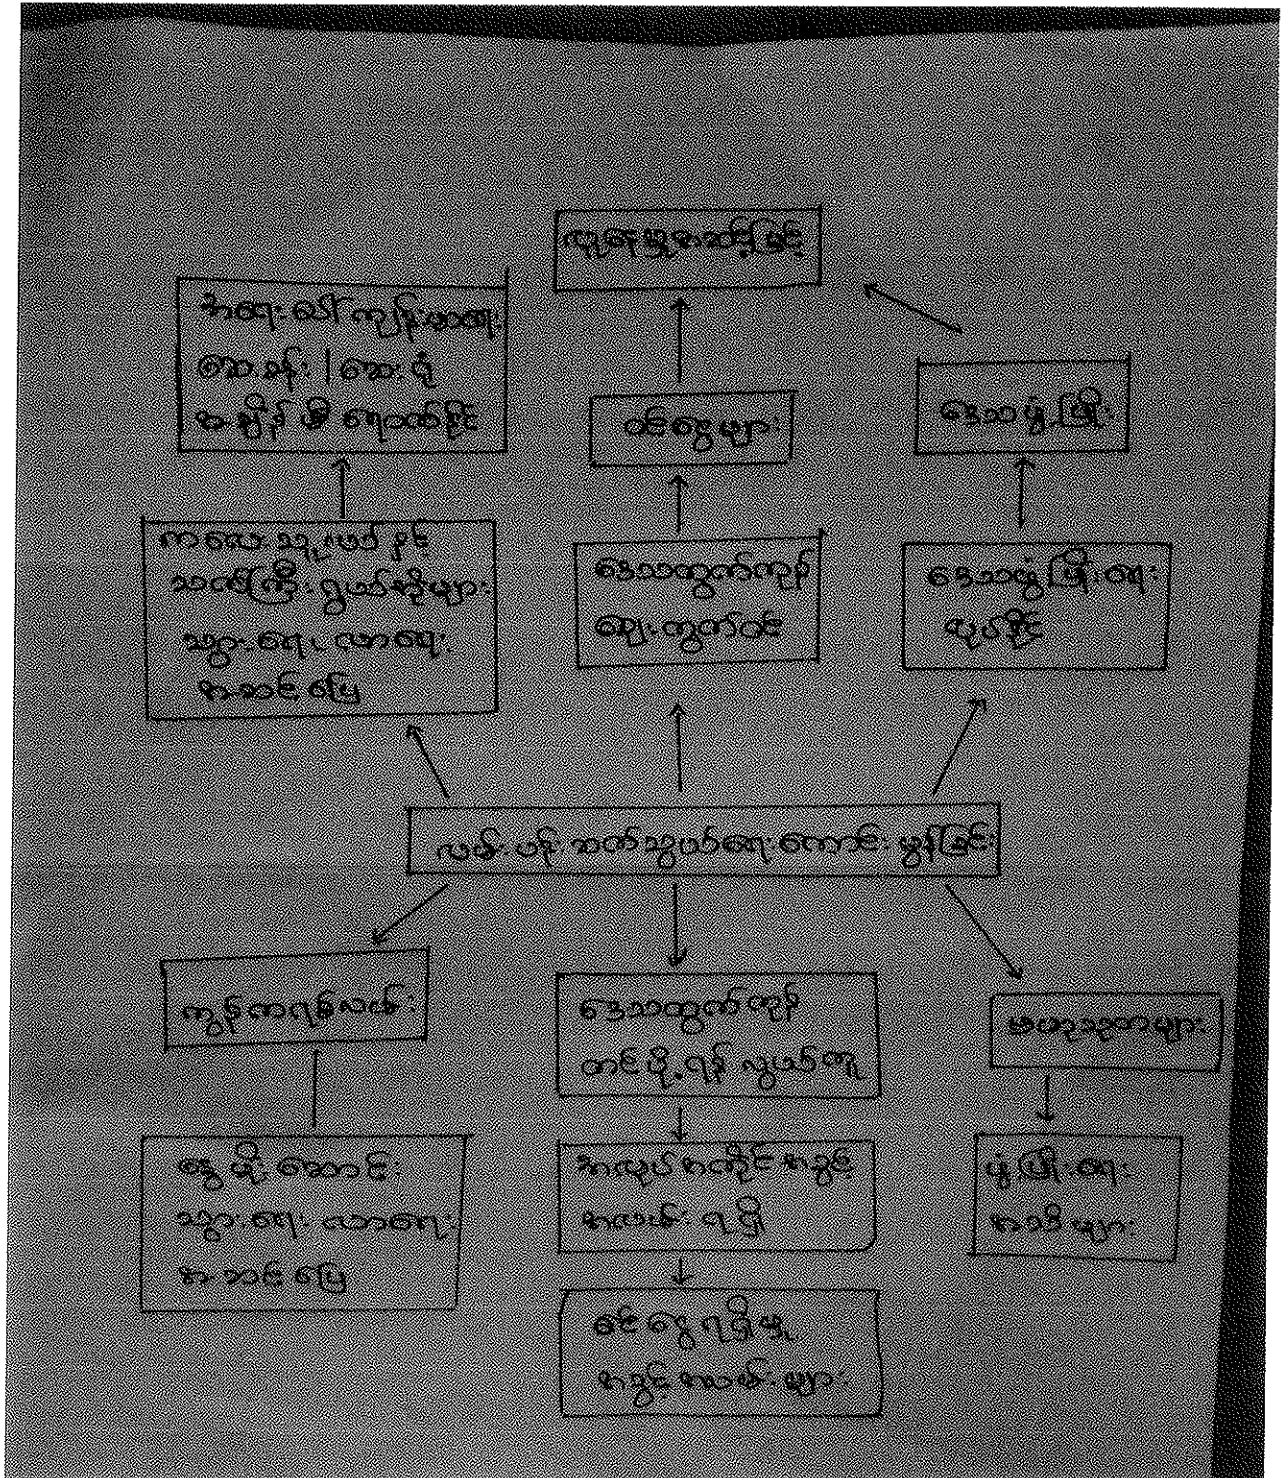 လူနေမှုအဆင့်မြင့်
အရေးပေါ်ကျန်းမာရေး
ဆေးခန်း / ဆေးရုံ
အချိန်မှီ ရောက်နိုင်
ဝင်ငွေများ
ဒေသဖွံ့ဖြိုး
ကလေးသူငယ်နှင့်
သက်ကြီးရွယ်အိုများ
သွားရေး လာရေး
အဆင်ပြေ
ဒေသထွက်ကုန်
ဈေးကွက်ဝင်
ဒေသဖွံ့ဖြိုးရေး
လုပ်နိုင်
လမ်းပန်းဆက်သွယ်ရေးကောင်းမွန်ခြင်း
ကွန်ကရစ်လမ်း
ဒေသထွက်ကုန်
တင်ပို့ရန် လွယ်ကူ
ဗဟုသုတများ
နွေမိုးဆောင်း
သွားရေး လာရေး
အဆင်ပြေ
အလုပ်အကိုင်အခွင့်
အလမ်း ရရှိ
ဖွံ့ဖြိုးရေး
အသိများ
ဝင်ငွေရရှိမှု
အခွင့်အလမ်းများ